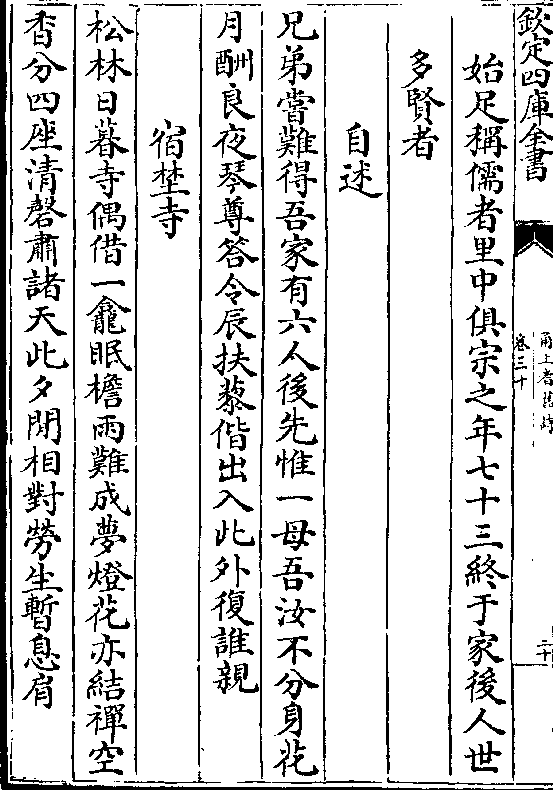 欽定四庫全書
甬上耆舊詩
卷三十
二十
始足稱儒者里中俱宗之年七十三終于家後人世
多賢者
自述
兄弟嘗難得吾家有六人後先惟一母吾汝不分身花
月酬良夜琴尊答令辰扶藜偕出入此外復誰親
宿埜寺
松林日暮寺偶借一龕眠檐雨難成夢燈花亦結禪空
香分四座清磬肅諸天此夕閒相對勞生暫息肩